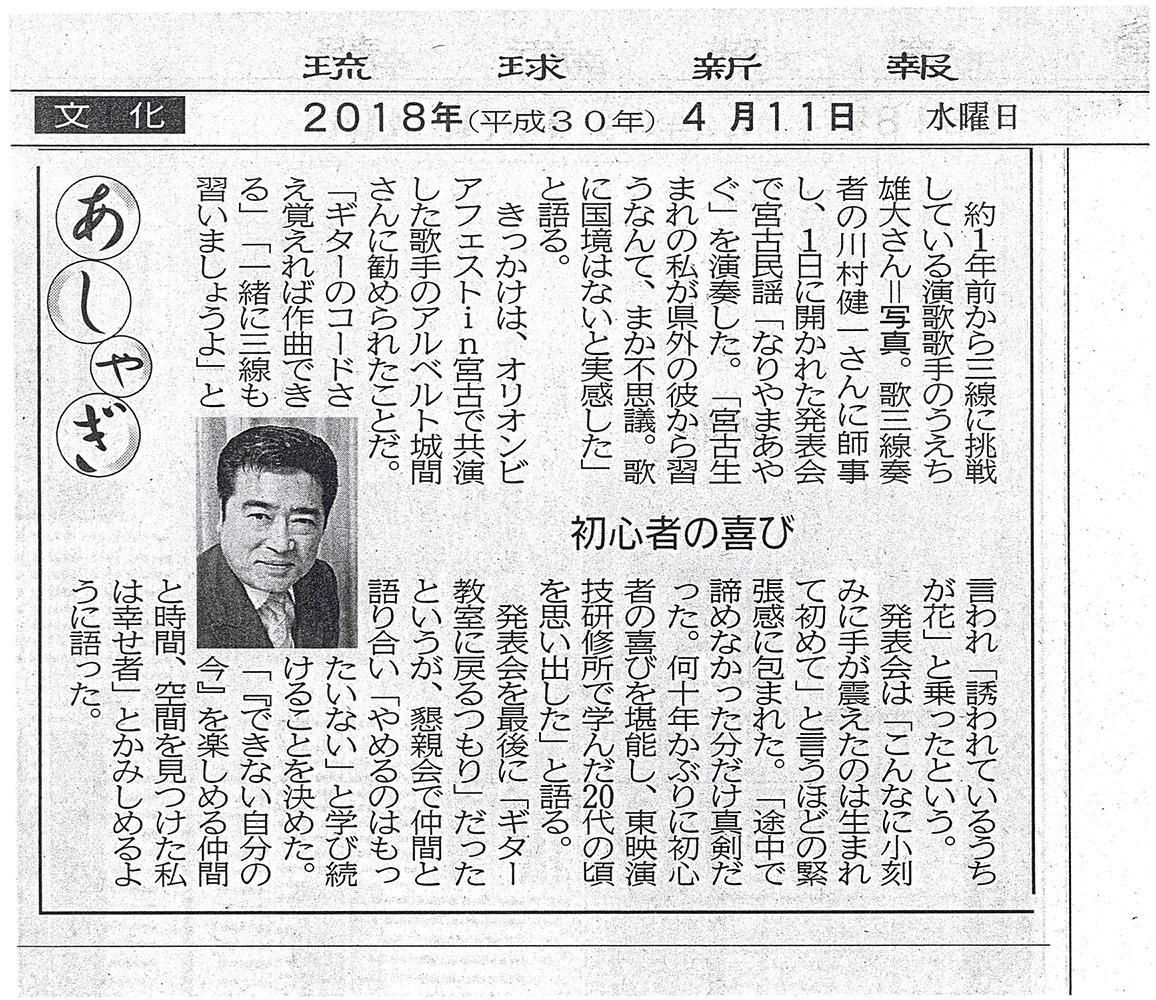 琉球新報
文化
2018年(平成30年) 4月11日 水曜日
あしゃぎ
初心者の喜び
　約1年前から三線に挑戦
している演歌歌手のうえち
雄大さん＝写真。歌三線奏
者の川村健一さんに師事
し、1日に開かれた発表会
で宮古民謡「なりやまあや
ぐ」を演奏した。「宮古生
まれの私が県外の彼から習
うなんて、まか不思議。歌
に国境はないと実感した」
と語る。
　きっかけは、オリオンビ
アフェストin宮古で共演
した歌手のアルベルト城間
さんに勧められたことだ。
「ギターのコードさ
え覚えれば作曲でき
る」「一緒に三線も
習いましょうよ」と
言われ「誘われているうち
が花」と乗ったという。
　発表会は「こんなに小刻
みに手が震えたのは生まれ
て初めて」と言うほどの緊
張感に包まれた。「途中で
諦めなかった分だけ真剣だ
った。何十年かぶりに初心
者の喜びを堪能し、東映演
技研修所で学んだ20代の頃
を思い出した」と語る。
　発表会を最後に「ギター
教室に戻るつもり」だった
というが、懇親会で仲間と
語り合い「やめるのはもっ
たいない」と学び続
けることを決めた。
「『できない自分の
今』を楽しめる仲間
と時間、空間を見つけた私
は幸せ者」とかみしめるよ
うに語った。